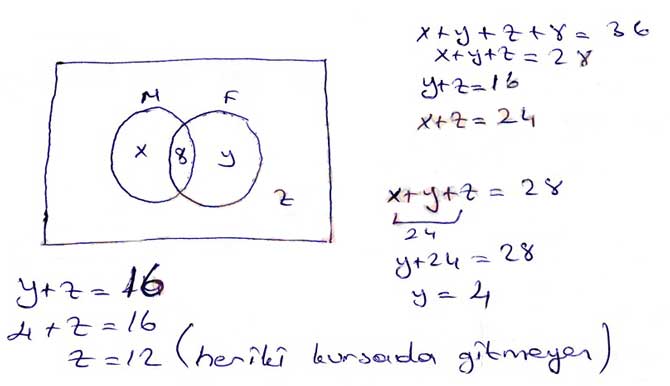 x+y+z+8=36
x+y+z=28
y+z=16
x+z=24
M F
x 8 y
z
x+y+z=28
24
y+24=28
y=4
y+z=16
4+z=16
z=12 (heriki kursada gitmeyen)